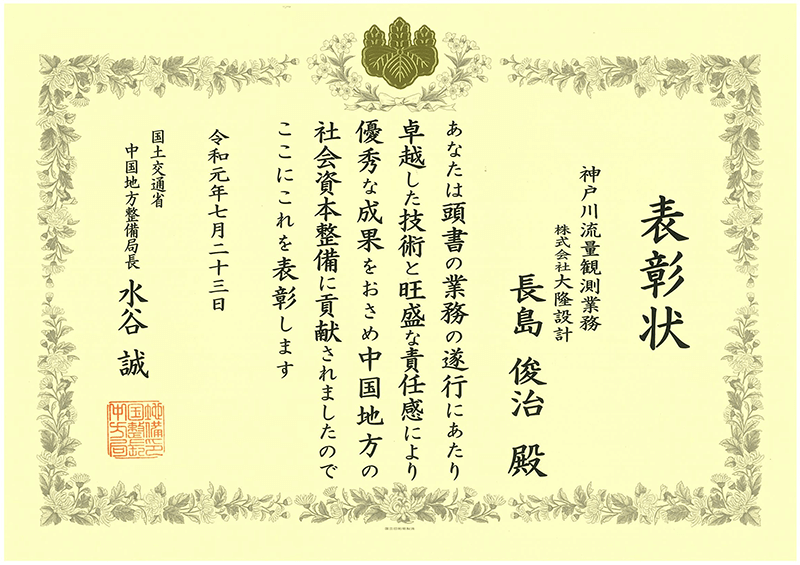 表彰状
神戸川流量観測業務
株式会社大隆設計
長島 俊治 殿
あなたは頭書の業務の遂行にあたり
卓越した技術と旺盛な責任感により
優秀な成果をおさめ中国地方の
社会資本整備に貢献されましたので
ここにこれを表彰します
令和元年七月二十三日
国土交通省
中国地方整備局長 水谷 誠